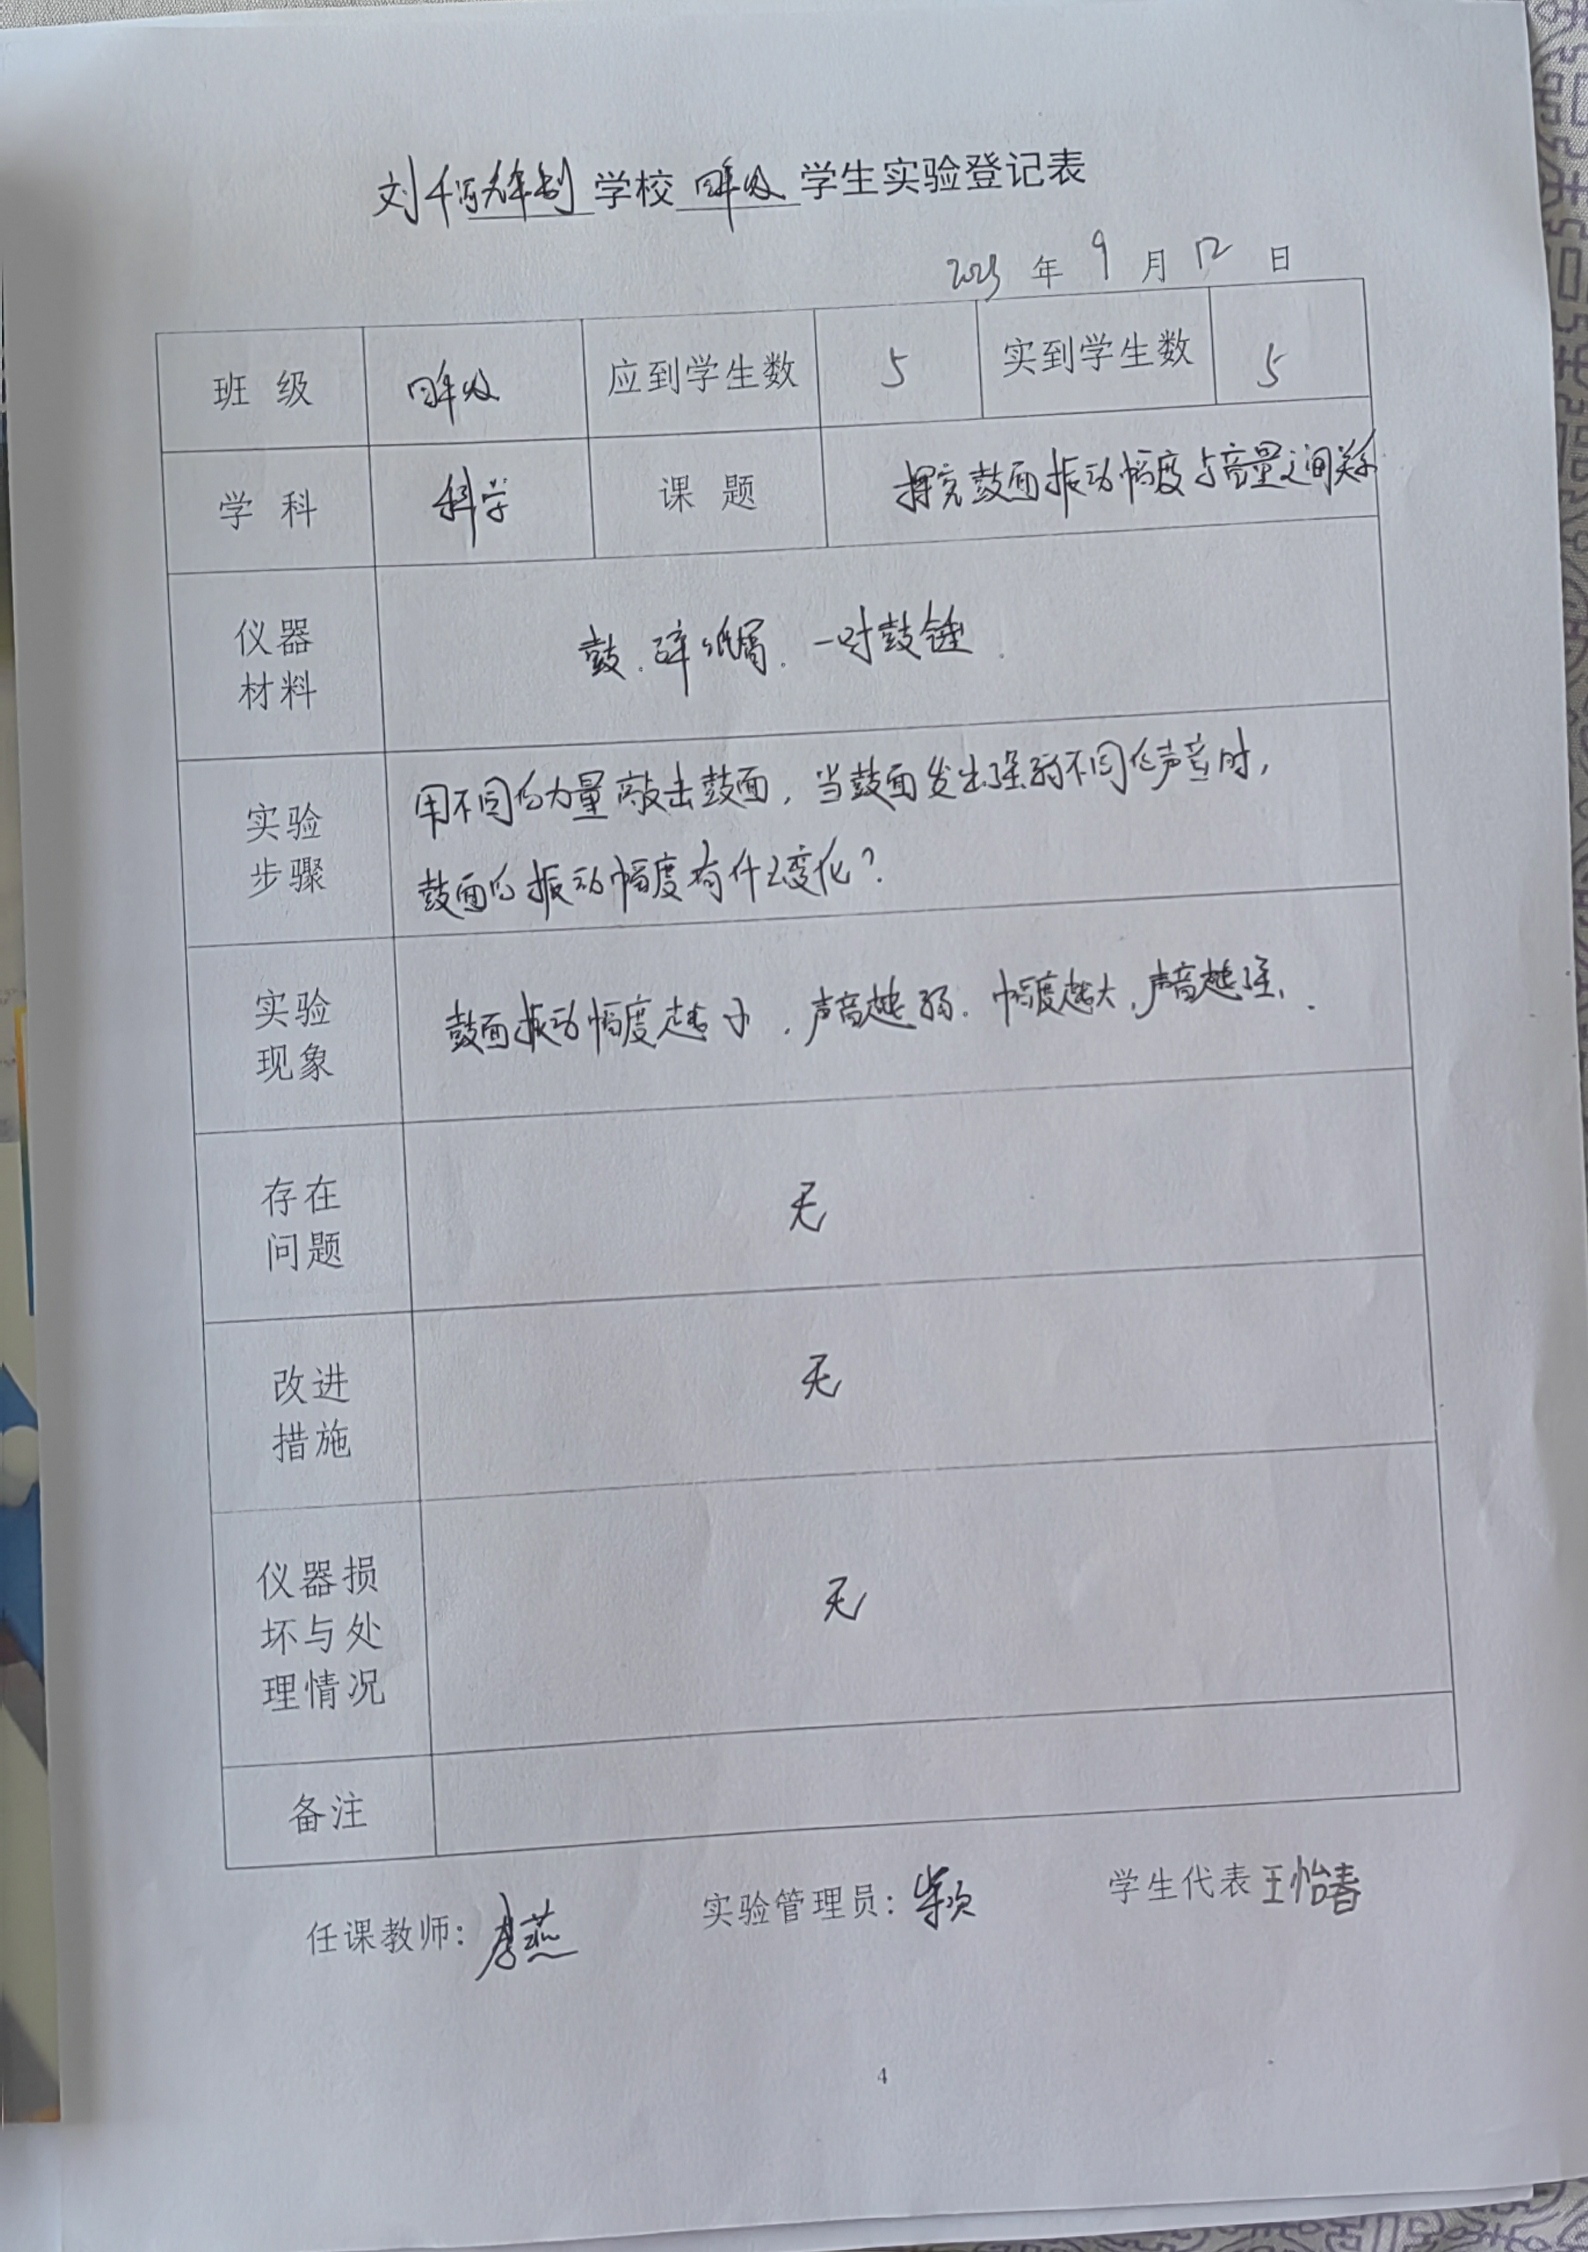 学校 四年级 学生实验登记表
年 9 月 12 日
班 级 四年级 应到学生数 5 实到学生数 5
学 科 科学 课 题 探究鼓面振动幅度与音量之间关系
仪器
材料
鼓、碎纸屑、一对鼓锤.
实验
步骤
用不同的力量敲击鼓面,当鼓面发出强弱不同的声音时,
鼓面的振动幅度有什么变化?
实验
现象
鼓面振动幅度越小,声音越弱.幅度越大,声音越强.
存在
问题
无
改进
措施
无
仪器损
坏与处
理情况
无
备注
任课教师: 李燕 实验管理员: 学生代表 王怡春
4